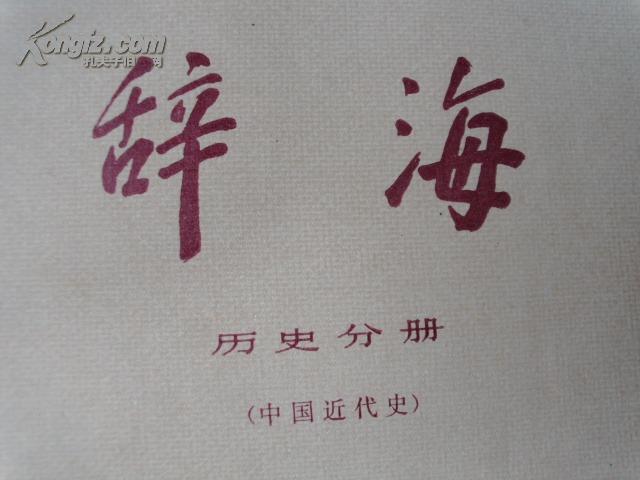 Kongfz.com
孔夫子旧书网
辞海
历史分册
(中国近代史)